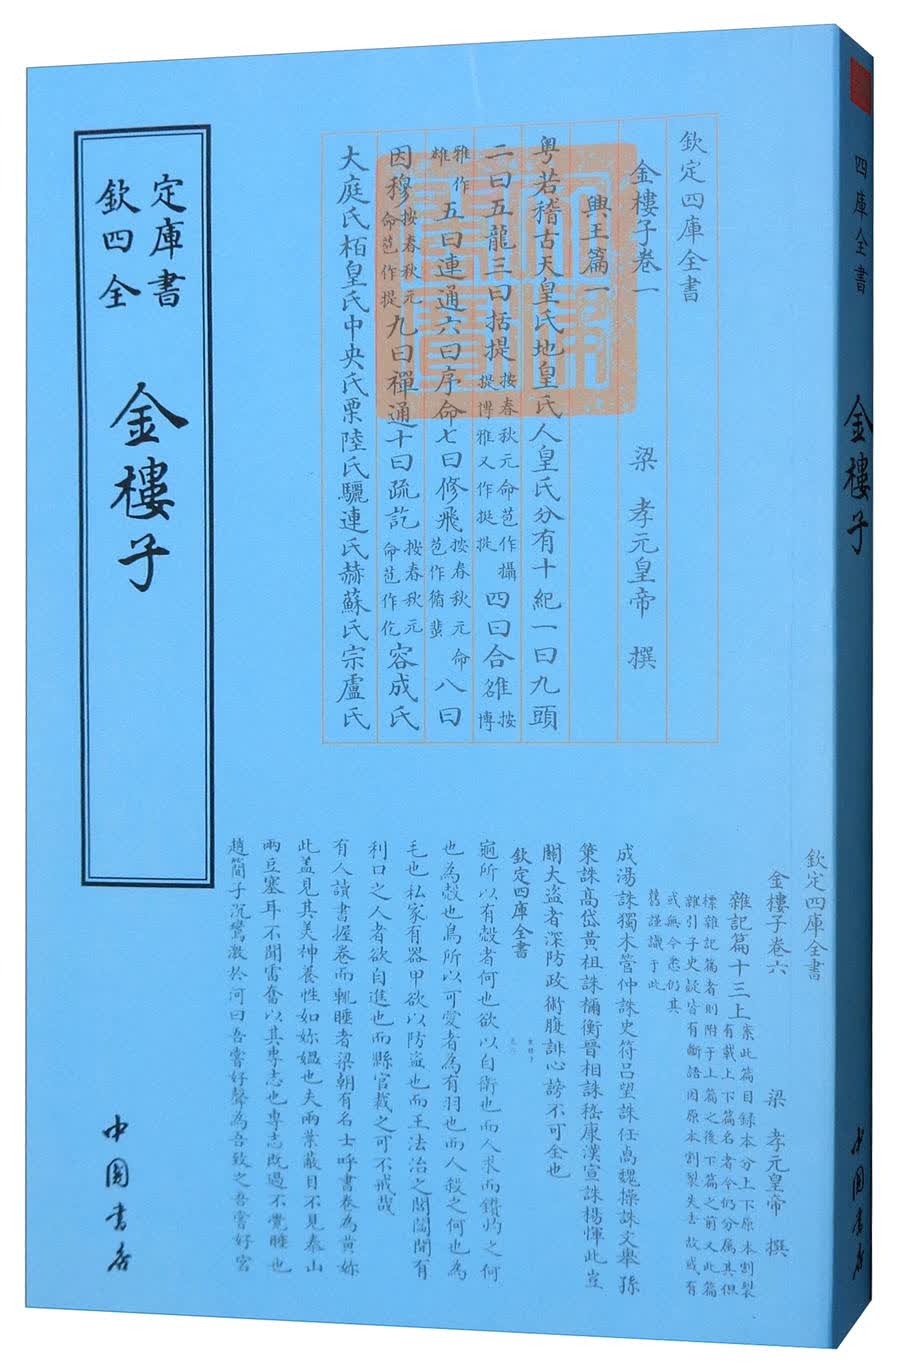 欽定四庫全書
金樓子
中國書店
欽定四庫全書
金樓子卷一
梁 孝元皇帝 撰
興王篇一
粤若稽古天皇氏地皇氏人皇氏分有十紀一曰九頭
二曰五龍三曰括提按春秋元命苞作攝提博雅又作挺提四曰合雒按博
雅作雄五曰連通六曰序命七曰修飛按春秋元命苞作循蜚八曰
因穆按春秋元命苞作提九曰禪通十曰疏訖按春秋元命苞作仡容成氏
大庭氏栢皇氏中央氏栗陸氏驪連氏赫蘇氏宗盧氏
欽定四庫全書
金樓子卷六
梁 孝元皇帝 撰
雜記篇十三上案此篇目録本分上下原本割裂
有載上下篇名者今仍分屬其但
標雜記篇者則附于上篇之後下篇之前又此篇
雜引子史疑皆有斷語因原本割裂失去故或有
或無今悉仍其
舊謹識于此
成湯誅獨木管仲誅史符吕望誅任卨魏操誅文舉孫
策誅高岱黄祖誅禰衡晉相誅嵇康漢宣誅楊惲此豈
關大盗者深防政術腹誹心謗不可全也
欽定四庫全書
迺所以有殼者何也欲以自衛也而人求而鑽灼之何
也為殼也鳥所以可愛者為有羽也而人殺之何也為
毛也私家有器甲欲以防盗也而王法治之閭閻聞有
利口之人者欲自進也而縣官裁之可不戒哉
有人讀書握卷而輒睡者梁朝有名士呼書卷為黄妳
此蓋見其美神養性如妳媪也夫兩葉蔽目不見泰山
兩豆塞耳不聞雷奮以其專志也專志既過不覺睡也
趙簡子沉鸞激於河曰吾嘗好聲為吾致之吾嘗好宫
四庫全書
金樓子
中國書店